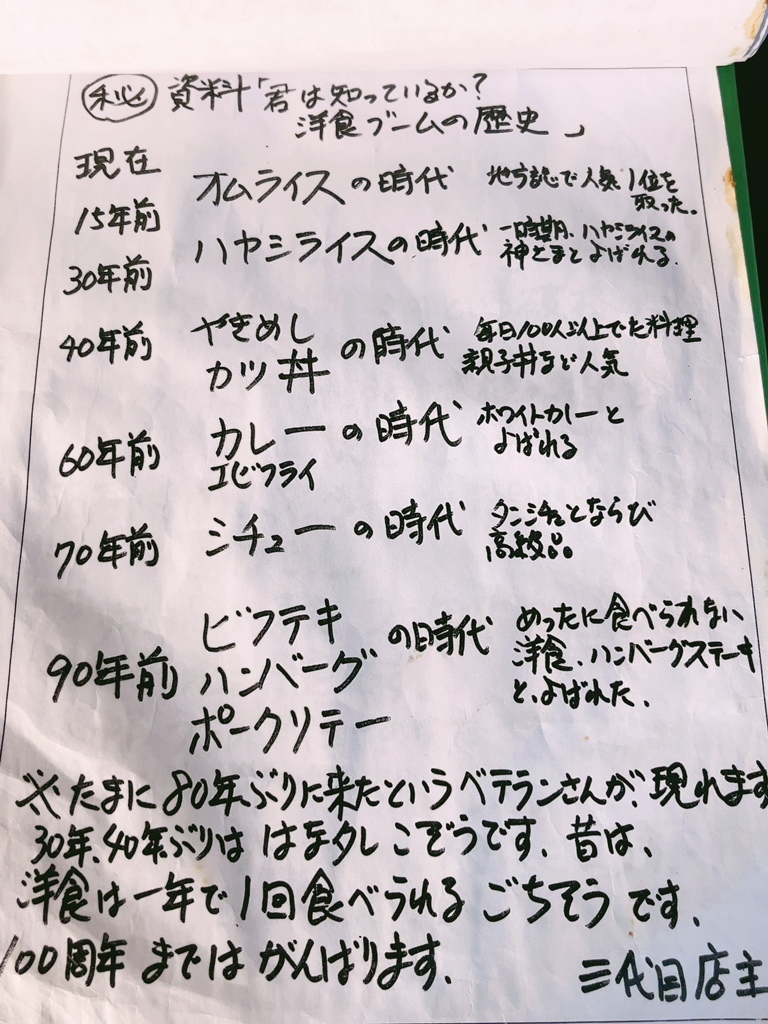 ㊙ 資料「君は知っているか?
洋食ブームの歴史」
現在
オムライスの時代 地方誌で人気1位を
取った。
15年前
ハヤシライスの時代 一時期、ハヤシライスの
神さまとよばれる.
30年前
40年前
やきめし
カツ丼 の時代 毎日100人以上でた料理
親子丼など人気
60年前
カレーの時代 ホワイトカレーと
よばれる
エビフライ
70年前
シチューの時代 タンシチュとならび
高級品
90年前
ビフテキ
ハンバーグ の時代
ポークソテー
めったに食べられない
洋食、ハンバーグステーキ
と、よばれた.
※たまに80年ぶりに来たというベテランさんが、現れます
30年、40年ぶりは はなタレこぞうです、昔は、
洋食は一年で1回食べられる ごちそうです、
100周年まではがんばります.
三代目店主